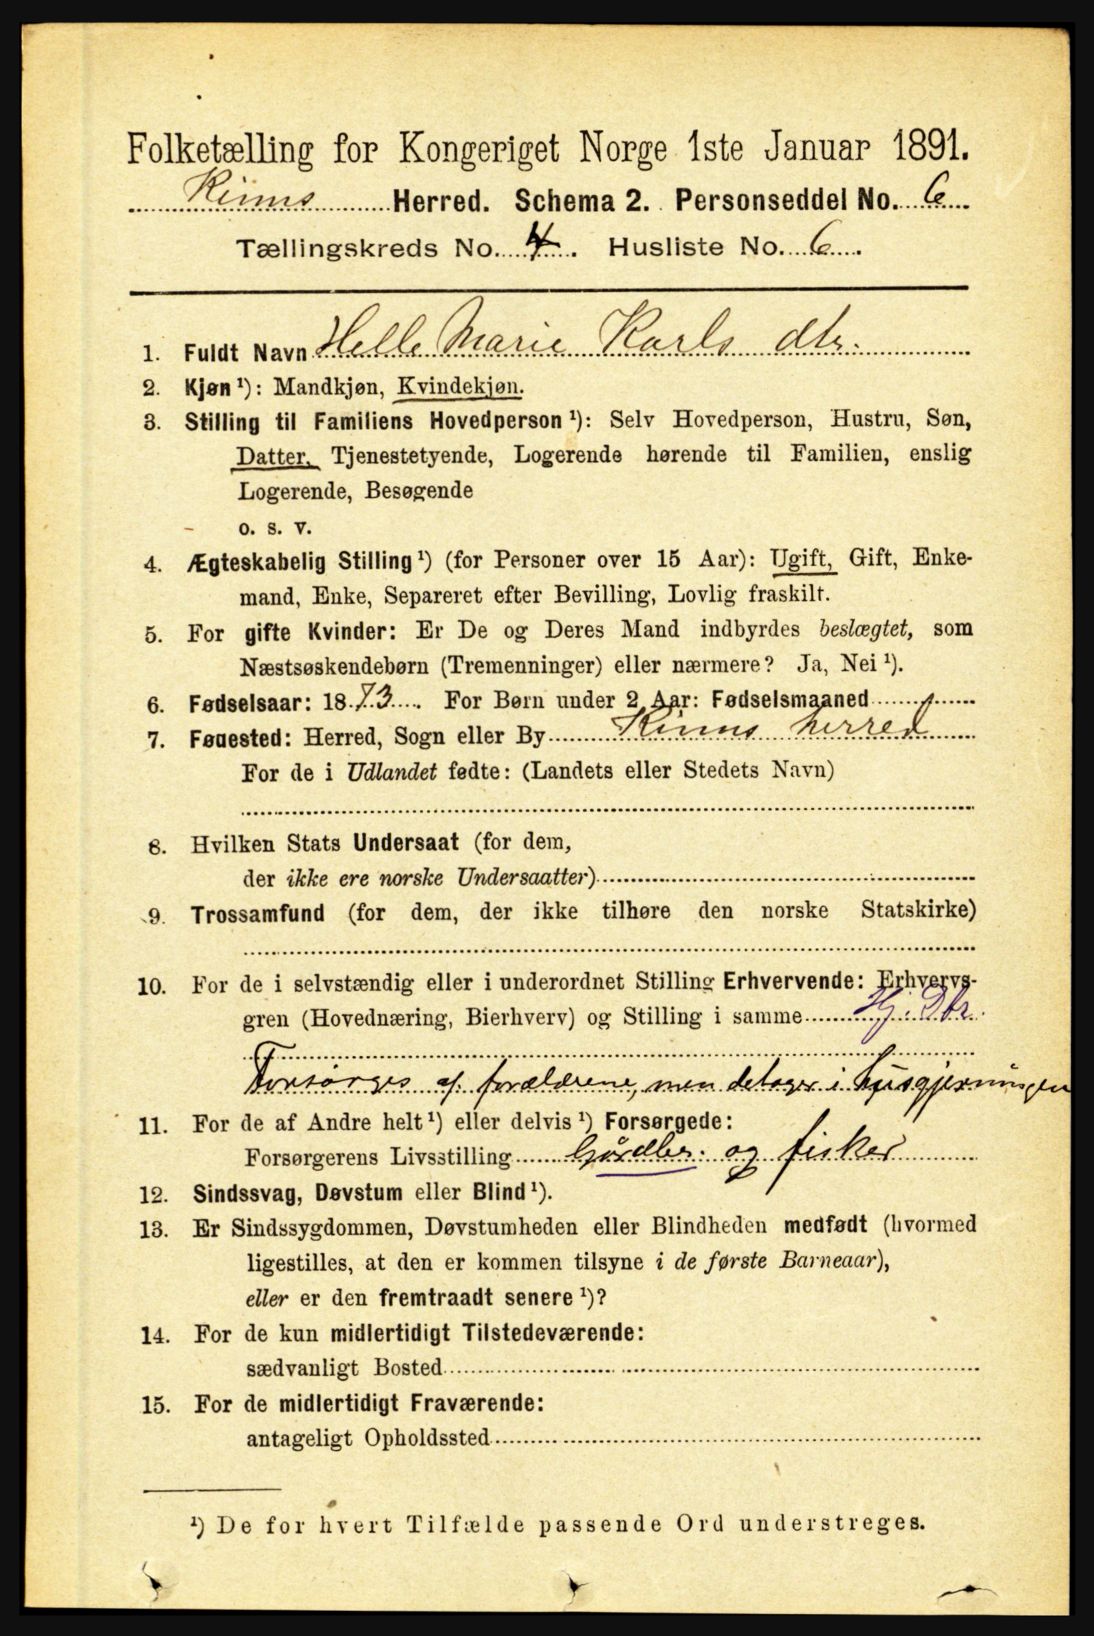 Folketælling for Kongeriget Norge 1ste Januar 1891.
Kinns Herred. Schema 2. Personseddel No. 6
Tællingskreds No. 4. Husliste No. 6.
1. Fuldt Navn Helle Marie Karls dtr.
2. Kjøn ¹): Mandkjøn, Kvindekjøn.
3. Stilling til Familiens Hovedperson ¹): Selv Hovedperson, Hustru, Søn,
Datter, Tjenestetyende, Logerende hørende til Familien, enslig
Logerende, Besøgende
o. s. v.
4. Ægteskabelig Stilling ¹) (for Personer over 15 Aar): Ugift, Gift, Enke-
mand, Enke, Separeret efter Bevilling, Lovlig fraskilt.
5. For gifte Kvinder: Er De og Deres Mand indbyrdes beslægtet, som
Næstsøskendebørn (Tremenninger) eller nærmere? Ja, Nei ¹).
6. Fødselsaar: 1873. For Børn under 2 Aar: Fødselsmaaned
7. Føuested: Herred, Sogn eller By Kinns herred
For de i Udlandet fødte: (Landets eller Stedets Navn)
8. Hvilken Stats Undersaat (for dem,
der ikke ere norske Undersaatter)
9. Trossamfund (for dem, der ikke tilhøre den norske Statskirke)
10. For de i selvstændig eller i underordnet Stilling Erhvervende: Erhvervs-
gren (Hovednæring, Bierhverv) og Stilling i samme Hj. Dtr.
Forsørges af forældrene, men detager i husgjerningen
11. For de af Andre helt ¹) eller delvis ¹) Forsørgede:
Forsørgerens Livsstilling Gårdbr. og fisker
12. Sindssvag, Døvstum eller Blind ¹).
13. Er Sindssygdommen, Døvstumheden eller Blindheden medfødt (hvormed
ligestilles, at den er kommen tilsyne i de første Barneaar),
eller er den fremtraadt senere ¹)?
14. For de kun midlertidigt Tilstedeværende:
sædvanligt Bosted
15. For de midlertidigt Fraværende:
antageligt Opholdssted
¹) De for hvert Tilfælde passende Ord understreges.